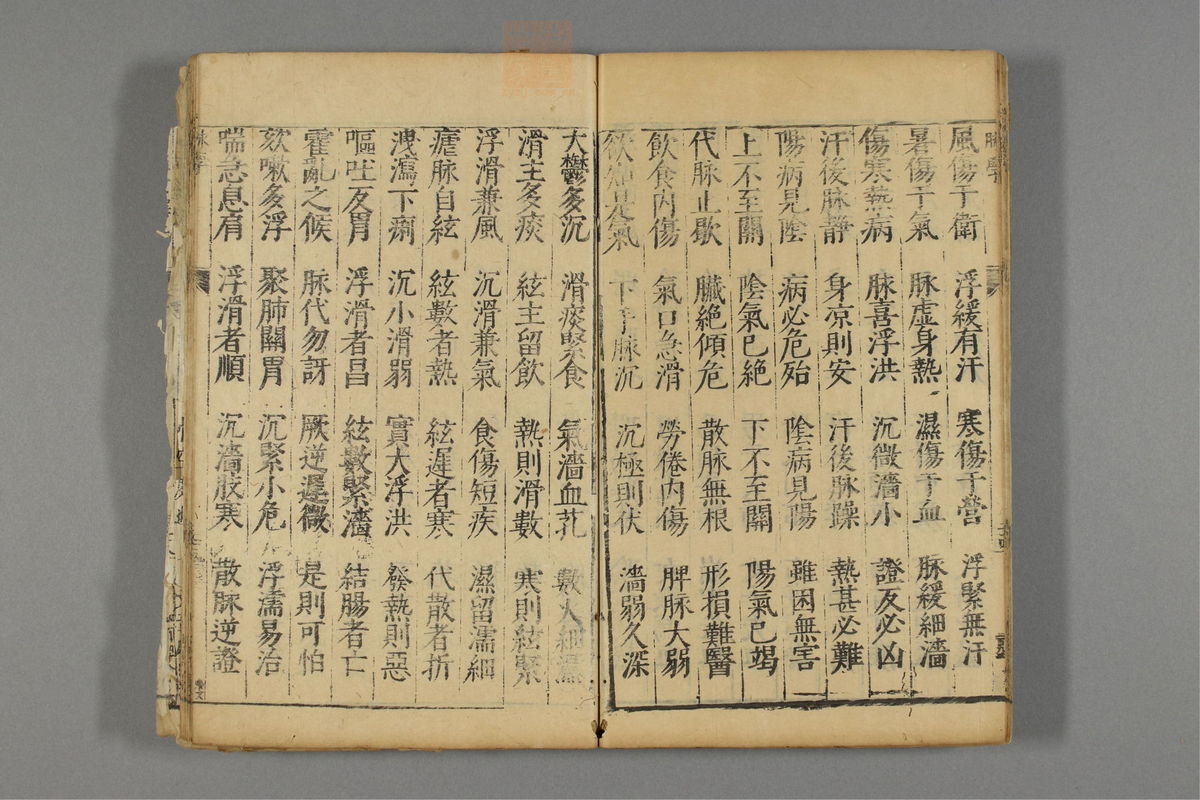 風傷于衛 浮緩有汗 寒傷于營 浮緊無汗
暑傷于氣 脉虛身熱 濕傷于血 脉緩細濇
傷寒熱病 脉喜浮洪 沉微濇小 證反必凶
汗後脉静 身凉則安 汗後脉躁 熱甚必難
陽病見陰 病必危殆 陰病見陽 雖困無害
上不至關 陰氣已絕 下不至關 陽氣已竭
代脉止歇 臟絕傾危 散脉無根 形損難醫
飲食內傷 氣口急滑 勞倦內傷 脾脉大弱
欲知是氣 下手脉沉 沉極則伏 濇弱久深
大鬱多沉 滑痰緊食 氣濇血芤 數火細濕
滑主多痰 絃主留飲 熱則滑數 寒則絃緊
浮滑兼風 沉滑兼氣 食傷短疾 濕留濡細
瘧脉自絃 絃數者熱 絃遲者寒 代散者折
洩瀉下痢 沉小滑弱 實大浮洪 發熱則惡
嘔吐反胃 浮滑者昌 絃數緊濇 結腸者亡
霍亂之候 脉代勿訝 厥逆遲微 是則可怕
欬嗽多浮 聚肺關胃 沉緊小危 浮濡易治
喘急息肩 浮滑者順 沉濇肢寒 散脉逆證